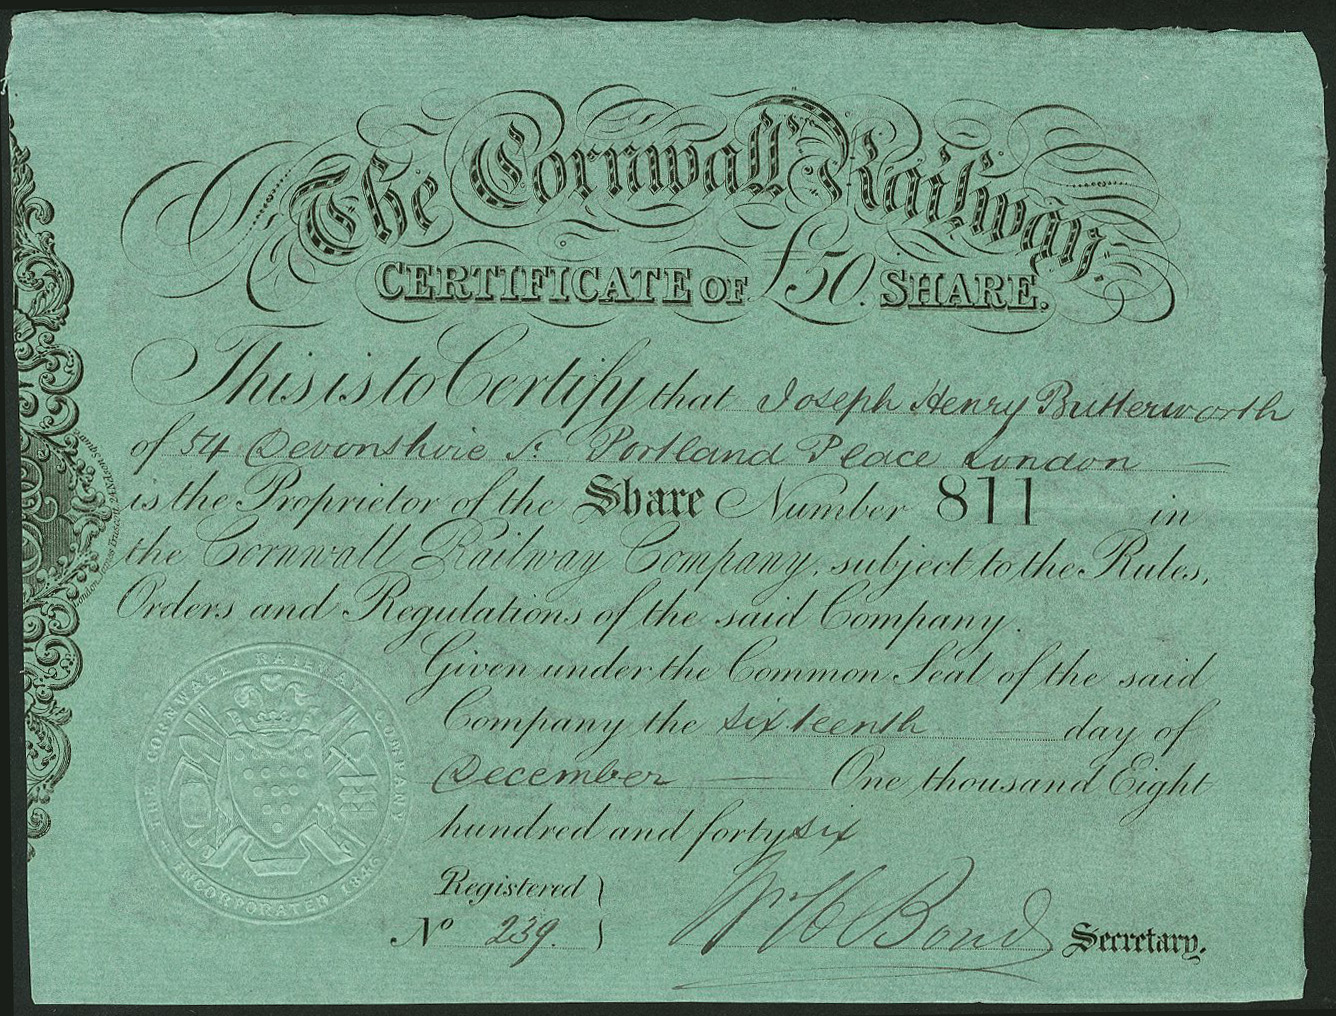 The Cornwall Railway.
CERTIFICATE OF £50. SHARE.
This is to Certify that Joseph Henry Butterworth
of 54 Devonshire St Portland Place London
is the Proprietor of the Share Number 811 in
the Cornwall Railway Company, subject to the Rules,
Orders and Regulations of the said Company.
Given under the Common Seal of the said
Company the sixteenth day of
December One thousand Eight
hundred and forty six
Registered
No 239.
W H Bond Secretary.
THE CORNWALL RAILWAY COMPANY
INCORPORATED 1846